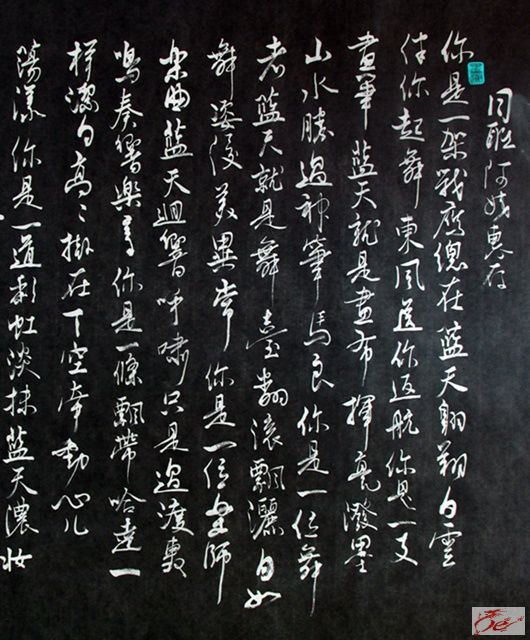 阿惠存
你是一架戰鷹總在藍天翱翔白雲
伴你起舞 東風送你返航你是一支
畫筆 藍天就是畫布 揮毫潑墨
山水勝過神筆馬良 你是一位舞
者 藍天就是舞臺 翻滾飄灑自如
舞姿優美異常 你是一位樂師
樂曲藍天迴響 呼嘯只是過渡
鳴奏響樂章 你是一條飄帶哈達一
样潔白高高掛在天空牽動心儿
蕩漾 你是一道彩虹淡抹藍天濃妝